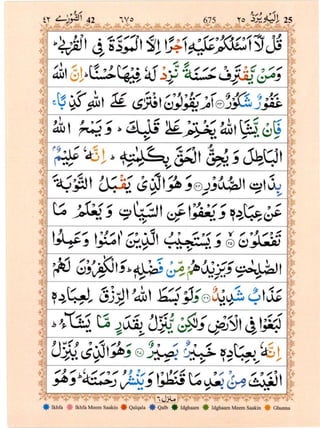 ٤٢ اَلشُّوْرٰى 42 ٦٧٥ 675 ٢٥ اِلَيْهِ يُرَدُّ 25
قُلْ لَّاۤ اَسْـَٔلُكُمْ عَلَيْهِ اَجْرًا اِلَّا الْمَوَدَّةَ فِى الْقُرْبٰىؕ
وَمَنْ يَّقْتَرِفْ حَسَنَةً نَّزِدْ لَهٗ فِيْهَا حُسْنًاؕ اِنَّ اللّٰهَ
غَفُوْرٌ شَكُوْرٌ ﴿۲۳﴾ اَمْ يَقُوْلُوْنَ افْتَرٰى عَلَى اللّٰهِ كَذِبًاۚ
فَاِنْ يَّشَاِ اللّٰهُ يَخْتِمْ عَلٰى قَلْبِكَؕ وَيَمْحُ اللّٰهُ
الْبَاطِلَ وَيُحِقُّ الْحَقَّ بِكَلِمٰتِهٖؕ اِنَّهٗ عَلِيْمٌۢ
بِذَاتِ الصُّدُوْرِ ﴿۲۴﴾ وَهُوَ الَّذِىْ يَقْبَلُ التَّوْبَةَ
عَنْ عِبَادِهٖ وَيَعْفُوْا عَنِ السَّيِّاٰتِ وَيَعْلَمُ مَا
تَفْعَلُوْنَ ﴿۲۵﴾ وَيَسْتَجِيْبُ الَّذِيْنَ اٰمَنُوْا وَعَمِلُوا
الصّٰلِحٰتِ وَيَزِيْدُهُمْ مِّنْ فَضْلِهٖؕ وَالْكٰفِرُوْنَ لَهُمْ
عَذَابٌ شَدِيْدٌ ﴿۲۶﴾ وَلَوْ بَسَطَ اللّٰهُ الرِّزْقَ لِعِبَادِهٖ
لَبَغَوْا فِى الْاَرْضِ وَلٰكِنْ يُّنَزِّلُ بِقَدَرٍ مَّا يَشَآءُؕ
اِنَّهٗ بِعِبَادِهٖ خَبِيْرٌۢ بَصِيْرٌ ﴿۲۷﴾ وَهُوَ الَّذِىْ يُنَزِّلُ
الْغَيْثَ مِنْۢ بَعْدِ مَا قَنَطُوْا وَيَنْشُرُ رَحْمَتَهٗؕ وَهُوَ
منزل ٦
Ikhfa Ikhfa Meem Saakin Qalqala Qalb Idghaam Idghaam Meem Saakin Ghunna